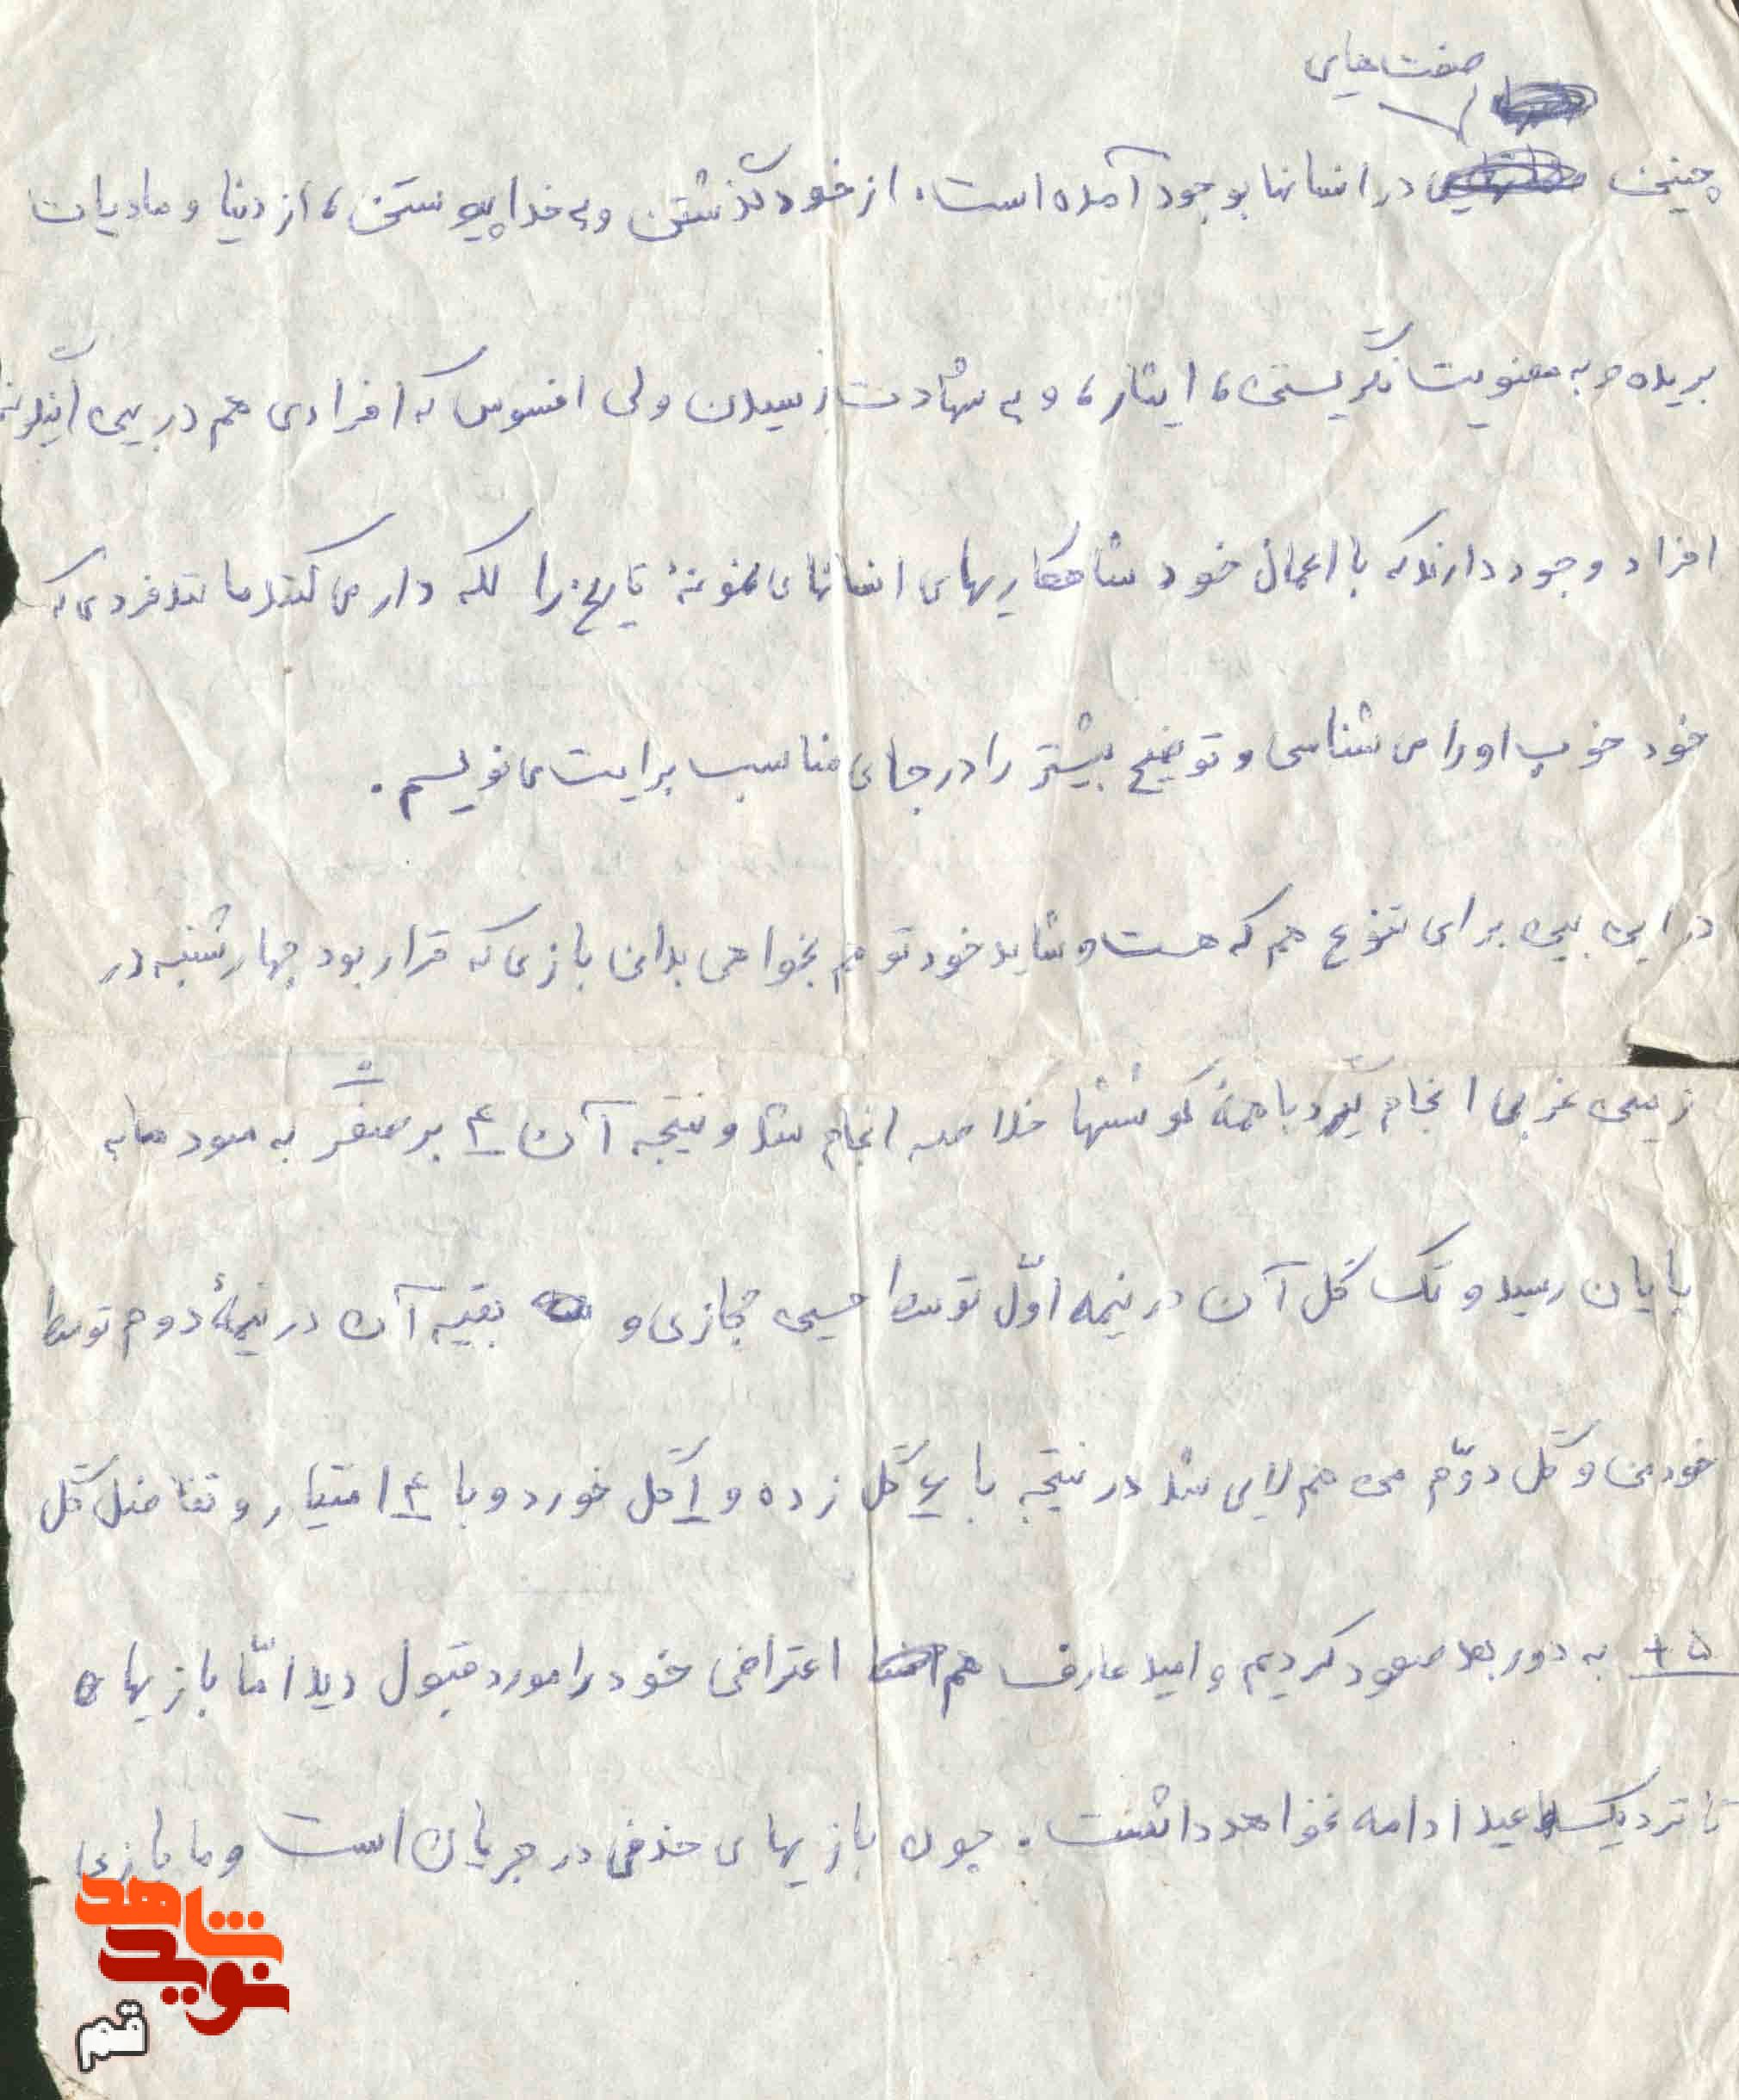 صفت‌هایی
چنین در انسانها بوجود آمده است. از خود گذشتن و به خدا پیوستن، از دنیا و مادیات
بریدن و به معنویت نگریستن، ایثار، و به شهادت رسیدن ولی افسوس که افرادی هم در بین اینگونه
افراد وجود دارند که با اعمال خود شاهکاریهای انسانهای نمونهٔ تاریخ را لکه دار می کنند مانند فردی که
خود خوب او را می شناسی و توضیح بیشتر را در جای مناسب برایت می نویسم.
در این بین برای تنوع هم که هست و شاید خود تو هم بخواهی بدانی بازی که قرار بود چهارشنبه در
زمین غربی انجام گیرد با همهٔ کوششها خلاصه انجام شد و نتیجه آن ۴ بر صفر ۰ به سود ما به
پایان رسید و تک گل آن در نیمه اوّل توسط حسین حجازی و بقیه آن در نیمهٔ دوم توسط
خود من و گل دوّم من هم لایی شد در نتیجه با ۶ گل زده و ۱ گل خورده و با ۴ امتیاز و تفاضل گل
+۵ به دور بعد صعود کردیم و امید عارف هم اعتراضی خود را مورد قبول دید امّا بازیهای
تا نزدیک عید ادامه نخواهد داشت. چون بازیهای حذفی در جریان است و ما بازی
شاهد
نوید
قم